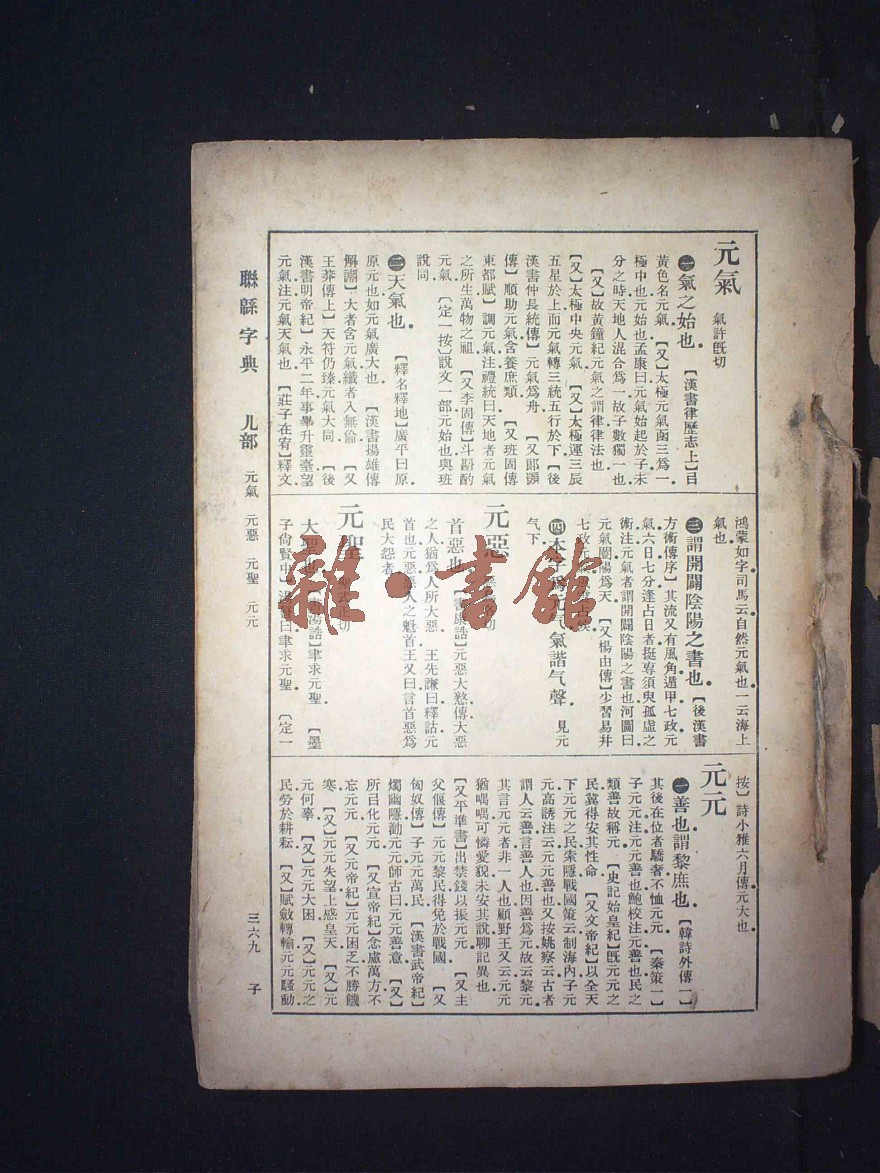 元氣 氣許旣切
㊀氣之始也 【漢書律歷志上】㠯
黃色名元氣 【又】太極元氣函三爲一
極中也元始也孟康曰元氣始起於子未
分之時天地人混合爲一故子數獨一也
【又】故黃鐘紀元氣之謂律律法也
【又】太極中央元氣 【又】太極運三辰
五星於上而元氣轉三統五行於下 【後
漢書仲長統傳】元氣爲舟 【又郞顗
傳】順助元氣含養庶類 【又班固傳
東都賦】調元氣注禮統曰天地者元氣
之所生萬物之祖 【又李固傳】斗斟酌
元氣 【定一按】說文一部元始也與班
說同
㊁天氣也 【釋名釋地】廣平曰原
原元也如元氣廣大也 【漢書揚雄傳
解謿】大者含元氣纖者入無倫 【又
王莽傳上】天符仍臻元氣大同 【後
漢書明帝紀】永平二年事畢升靈臺望
元氣注元氣天氣也 【莊子在宥】釋文
鴻蒙如字司馬云自然元氣也一云海上
氣也
㊂謂開闢陰陽之書也 【後漢書
方術傳序】其流又有風角遁甲七政元
氣六日七分逢占日者挺專須臾孤虛之
術注元氣者謂開闢陰陽之書也河圖曰
元氣闓陽爲天 【又楊由傳】少習易幷
七政元氣風雲占候
㊃本字爲元气氣諧气聲 見元
气下
元惡
首惡也 【書康誥】元惡大憝傳大惡
之人猶爲人所大惡 王先謙曰釋詁元
首也元惡惡人之魁首王又曰言首惡爲
民大怨者
元聖 聖式正切
大聖也 【書湯誥】聿求元聖 【墨
子尙賢中】湯誓曰聿求元聖 【定一
按】詩小雅六月傳元大也
元元
㊀善也謂黎庶也 【韓詩外傳一】
其後在位者驕奢不恤元元 【秦策一】
子元元注元元善也鮑校注元善也民之
類善故稱元 【史記始皇紀】旣元元之
民冀得安其性命 【又文帝紀】以全天
下元元之民索隱戰國策云制海內子元
元高誘注云元元善也又按姚察云古者
謂人云善言善人也因善爲元故云黎元
其言元元者非一人也顧野王又云元元
猶喁喁可憐愛貌未安其說聊記異也
【又平準書】出禁錢以振元元 【又主
父偃傳】元元黎民得免於戰國 【又
匈奴傳】子元元萬民 【漢書武帝紀】
燭幽隱勸元元師古曰元元善意 【又】
所㠯化元元 【又宣帝紀】念慮萬方不
忘元元 【又元帝紀】元元困乏不勝饑
寒 【又】元元失望上感皇天 【又】元
元何辜 【又】元元大困 【又】元元之
民勞於耕耘 【又】賦斂轉輸元元騷動
聯緜字典 儿部 元氣 元惡 元聖 元元
三六九 子
雜·書館